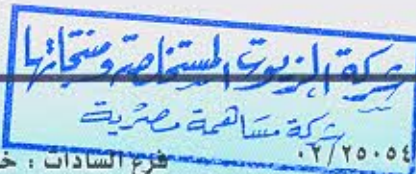 شركة الزيوت المستخلصة ومنتجاتها
شركة مساهمة مصرية
٠٢/٢٥٠٥٤
فرع السادات : خ